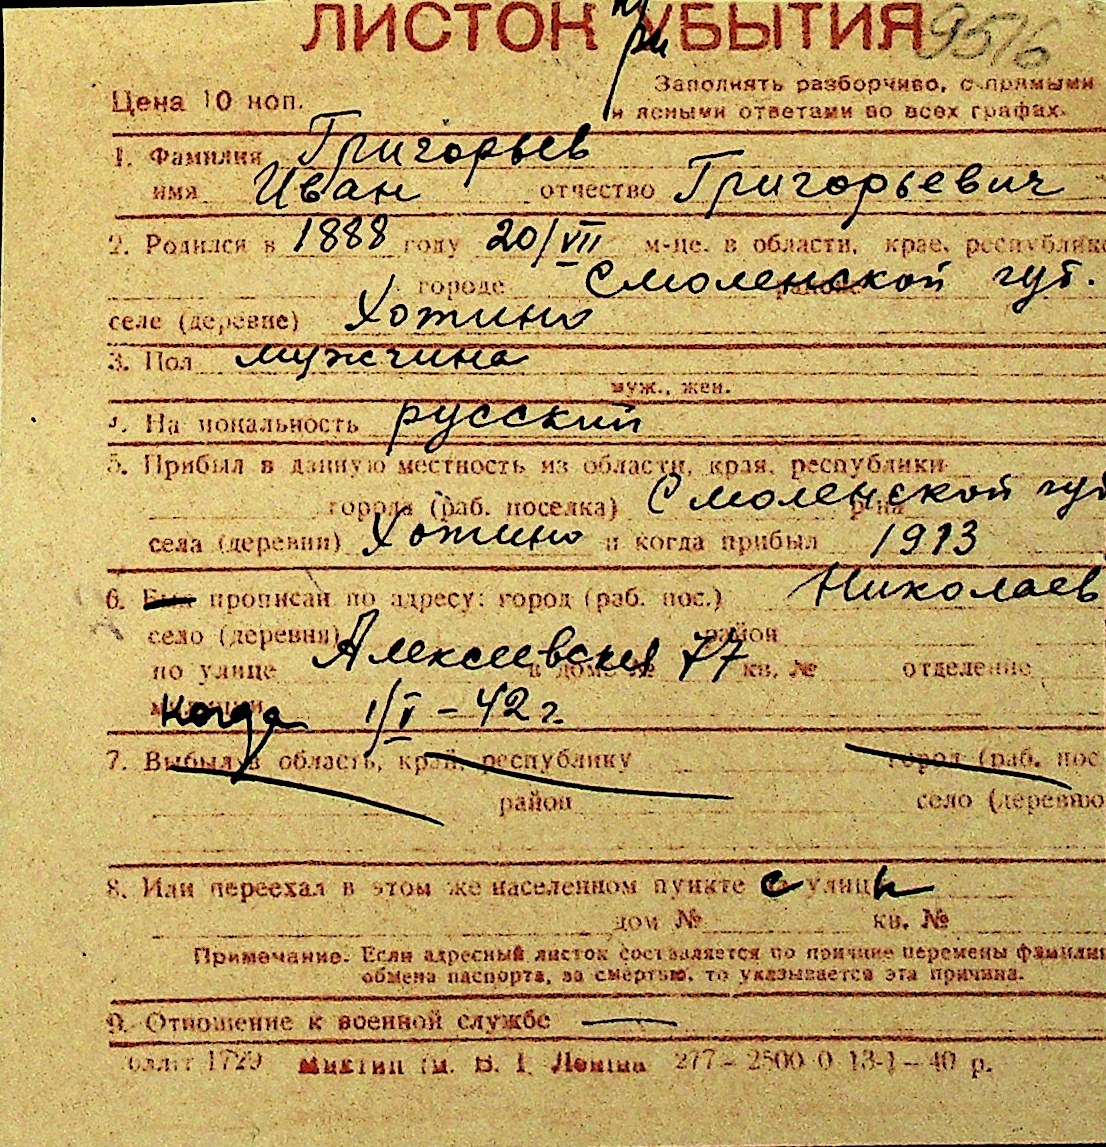 ЛИСТОК УБЫТИЯ 9516
при
Заполнять разборчиво, с прямыми
Цена 10 коп.
и ясными ответами во всех графах.
1. Фамилия Григорьев
имя Иван отчество Григорьевич
2. Родился в 1888 году 20/VII м-це. в области, крае, республике
городе районе Смоленской губ.
селе (деревне) Хотино
3. Пол мужчина
муж., жен.
На иональность русский
5. Прибыл в данную местность из области, края, республики
города (раб. поселка) р-на Смоленской губ
села (деревни) Хотино и когда прибыл 1913
6. Был прописан по адресу: город (раб. пос.) Николаев
село (деревня) район
по улице Алексеевская 77 в доме № кв. № отделение
милиции когда 1/V – 42 г.
7. Выбыл в область, край, республику город (раб. пос.
район село (деревню
8. Или переехал в этом же населенном пункте с улицы
дом № кв. №
Примечание. Если адресный листок составляется по причине перемены фамилии
обмена паспорта, за смертью, то указывается эта причина.
9. Отношение к военной службе —
1729 им. В. І. Леніна 277 – 2500 0 13-1 – 40 р.